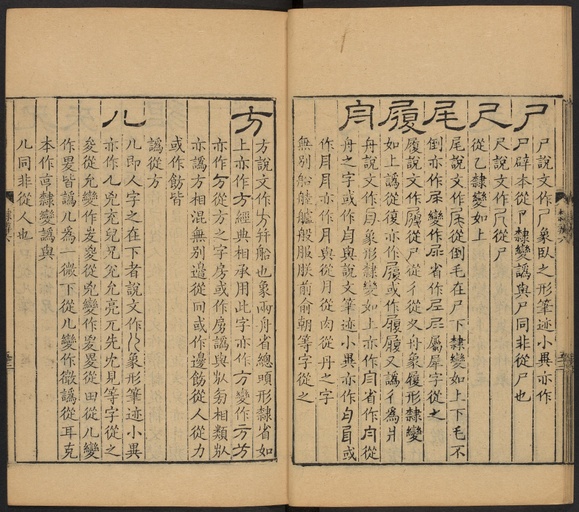 尸
尸說文作尸象臥之形筆迹小異亦作
尸辟本從卩隸變譌與尸同非從尸也
尺
尺說文作尺從尸
從乙隸變如上
尾
尾說文作尾從倒毛在尸下隸變如上下毛不
倒亦作尾變作尾省作尾屬犀字從之
履
履說文作履從尸從彳從夊舟象履形隸變
如上譌從復亦作履或作履履又譌彳為爿
舟
舟說文作舟象形隸變如上亦作舟省作月從
舟之字或作舟與說文筆迹小異亦作舟舟或
作月月亦作月與從月從肉從丹之字
無別船舩艫般服朕前俞朝等字從之
方
方說文作方幷船也象兩舟省總頭形隸省如
上亦作方經典相承用此字亦作方變作方方
亦作方從方之字房或作房譌與㫃芴相類㫃
亦譌方相混無別邉從冋或作邉飭從人從力
或作飭皆
譌從方
儿
儿即人字之在下者說文作儿象形筆迹小異
亦作儿兒兗兒兄兌允亮元先尣見等字從之
夋從允變作夋夋從兇變作夋畟從田從儿變
作畟皆譌儿為一微下從儿變作微譌從耳克
本作克隸變譌與
儿同非從人也